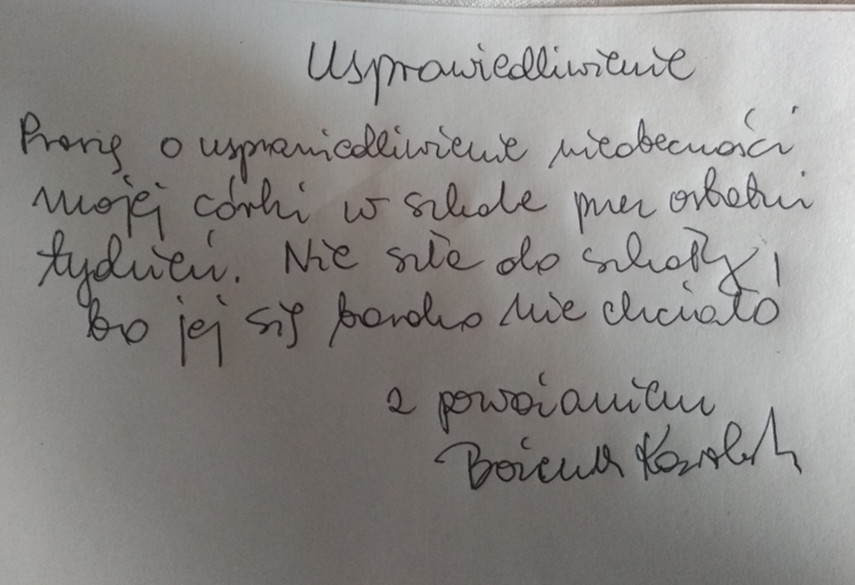 Usprawiedliwienie
Proszę o usprawiedliwienie nieobecności
mojej córki w szkole przez ostatni
tydzień. Nie szła do szkoły,
bo jej się bardzo nie chciało
z poważaniem
Bożena